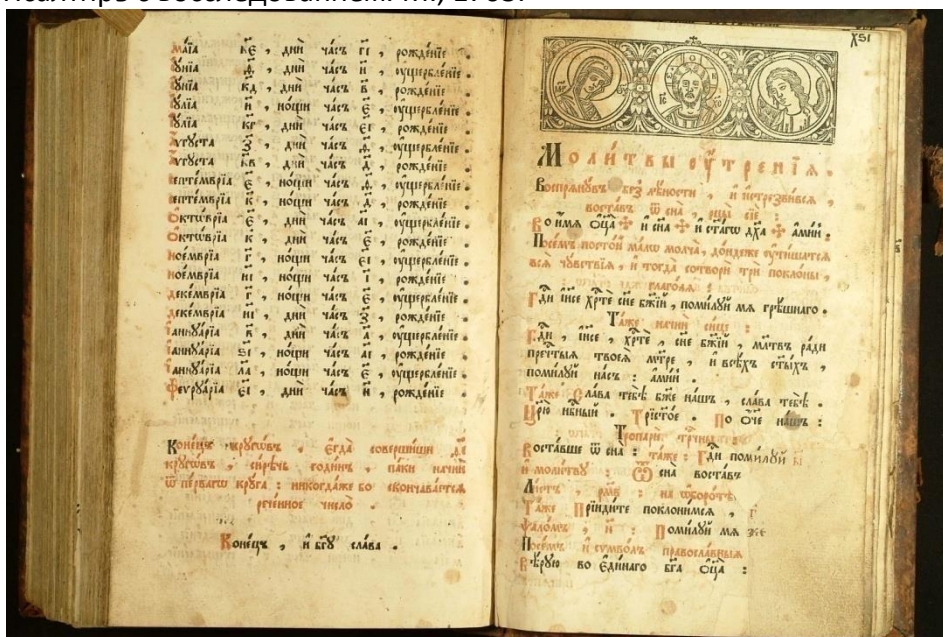 Маїа к҃е , дни̑ часъ г҃і , рожде́нїе
Іꙋ́нїа ѳ҃ , дни̑ часъ и҃ , ᲂу҆щербле́нїе .
Іꙋ́нїа к҃д , дни̑ часъ в҃ , рожде́нїе .
Іꙋ́лїа и҃ , но́щи часъ є҃ , ᲂу҆щербле́нїе .
Іꙋ́лїа к҃г , дни̑ часъ є҃і , рожде́нїе .
А҆́ѵгꙋста з҃ , дни̑ часъ д҃ , ᲂу҆щербле́нїе .
А҆́ѵгꙋста к҃в , дни̑ часъ д҃ , рожде́нїе .
септе́мврїа є҃ , но́щи часъ , ᲂу҆щербле́нїе .
септе́мврїа к҃ , но́щи часъ д҃ , рожде́нїе
Ѻ҆ктѡ́врїа є҃ , дни̑ часъ а҃і , ᲂу҆щербле́нїе .
Ѻ҆ктѡ́врїа к҃ , дни̑ часъ є҃ , рожде́нїе .
ное́мврїа г҃ , но́щи часъ є҃і , ᲂу҆щербле́нїе .
ное́мврїа н҃і , но́щи часъ , рожде́нїе
деке́мврїа г҃ , но́щи часъ є҃ , ᲂу҆щербле́нїе .
деке́мврїа и҃і , дни̑ часъ з҃ , рожде́нїе .
і҆аннꙋа́рїа в҃ , дни̑ часъ а҃ , ᲂу҆щербле́нїе .
і҆аннꙋа́рїа ѕ҃і , но́щи часъ а҃і , рожде́нїе
і҆аннꙋа́рїа л҃а , но́щи часъ є҃ , ᲂу҆щербле́нїе .
Феврꙋа́рїа є҃і , дни̑ часъ и҃ , рожде́нїе .
Коне́цъ крꙋгѡ́въ . є҆гда̀ соверши́ши
крꙋгѡ́въ , си́рѣчь годи́нъ , па́ки начнѝ
ѿ пе́рвагѡ крꙋ́га : никогда́же бо сконча́ваетсѧ
рече́нное число̀ .
Коне́цъ , и҆ бг҃ꙋ сла́ва .
х҃ѕі
Моли̑твы ᲂу҆́трєнїѧ .
Воспрѧнꙋ́въ без̾ лѣ́ности , и҆ и҆стрезви́всѧ ,
воста́въ ѿ сна̀ , рцы̀ сїѐ :
Во и҆́мѧ ѻ҆ц҃а̀ ✠ и҆ сн҃а ✠ и҆ ст҃а́гѡ дх҃а ✠ а҆ми́нь :
Посе́мъ посто́й ма́лѡ молча̀ , до́ндеже ᲂу҆тиша́тсѧ
всѧ̑ чꙋ̑вствїѧ , и҆ тогда̀ сотворѝ трѝ покло́ны ,
глаго́лѧ :
Гд҃и і҆и҃се хр҃тѐ сн҃е бж҃їй , поми́лꙋй мѧ грѣ́шнаго .
Та́же начнѝ си́це :
Гд҃и , і҆и҃се , хр҃тѐ , сн҃е бж҃їй , мл҃твъ ра́ди
пречⷭ҇тыѧ твоеѧ̀ мт҃ре , и҆ всѣ́хъ ст҃ы́хъ ,
поми́лꙋй на́съ : а҆ми́нь .
Та́же Сла́ва тебѣ̀ бж҃е на́шъ , сла́ва тебѣ̀ .
Цр҃ю̀ нб҃ный . Трист҃о́е . По ѻ҆́ч҃е на́шъ :
Тропарѝ трⷪ҇чны :
Воста́вше ѿ сна̀ : та́же : Гд҃и поми́лꙋй в҃і
и҆ моли́твꙋ : Ѿ сна̀ воста́въ
Ли́стъ , рм҃в : на ѡ҆боро́тѣ
Та́же Прїиди́те поклони́мсѧ , г҃
Ѱало́мъ , н҃ : Поми́лꙋй мѧ бж҃е
Посе́мъ и҆ сѵ́мволъ правосла́вныѧ
Вѣ́рꙋю во є҆ди́наго бг҃а ѻ҆ц҃а̀ :